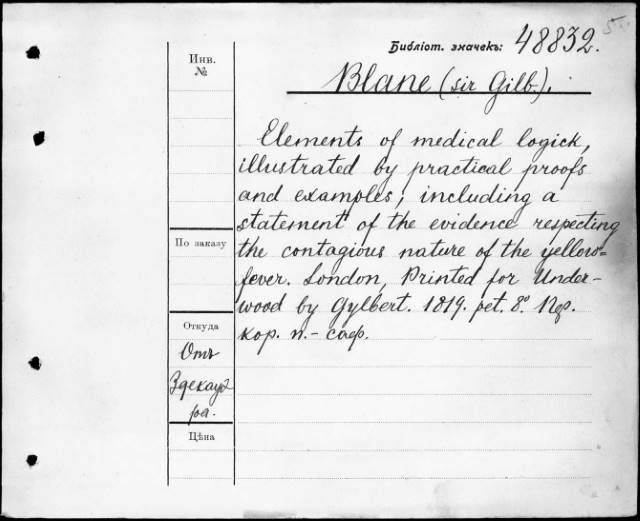 Библіот. значекъ: 48832.
Инв. №
Blane (sir Gilb.).
Elements of medical logick,
illustrated by practical proofs
and examples; including a
statement of the evidence respecting
the contagious nature of the yellow=
fever. London, Printed for Under-
wood by Gylbert. 1819. pet. 8º. Пер.
кор. п.- саф.
По заказу
Откуда
Отъ
Здекауэ
ра.
Цѣна